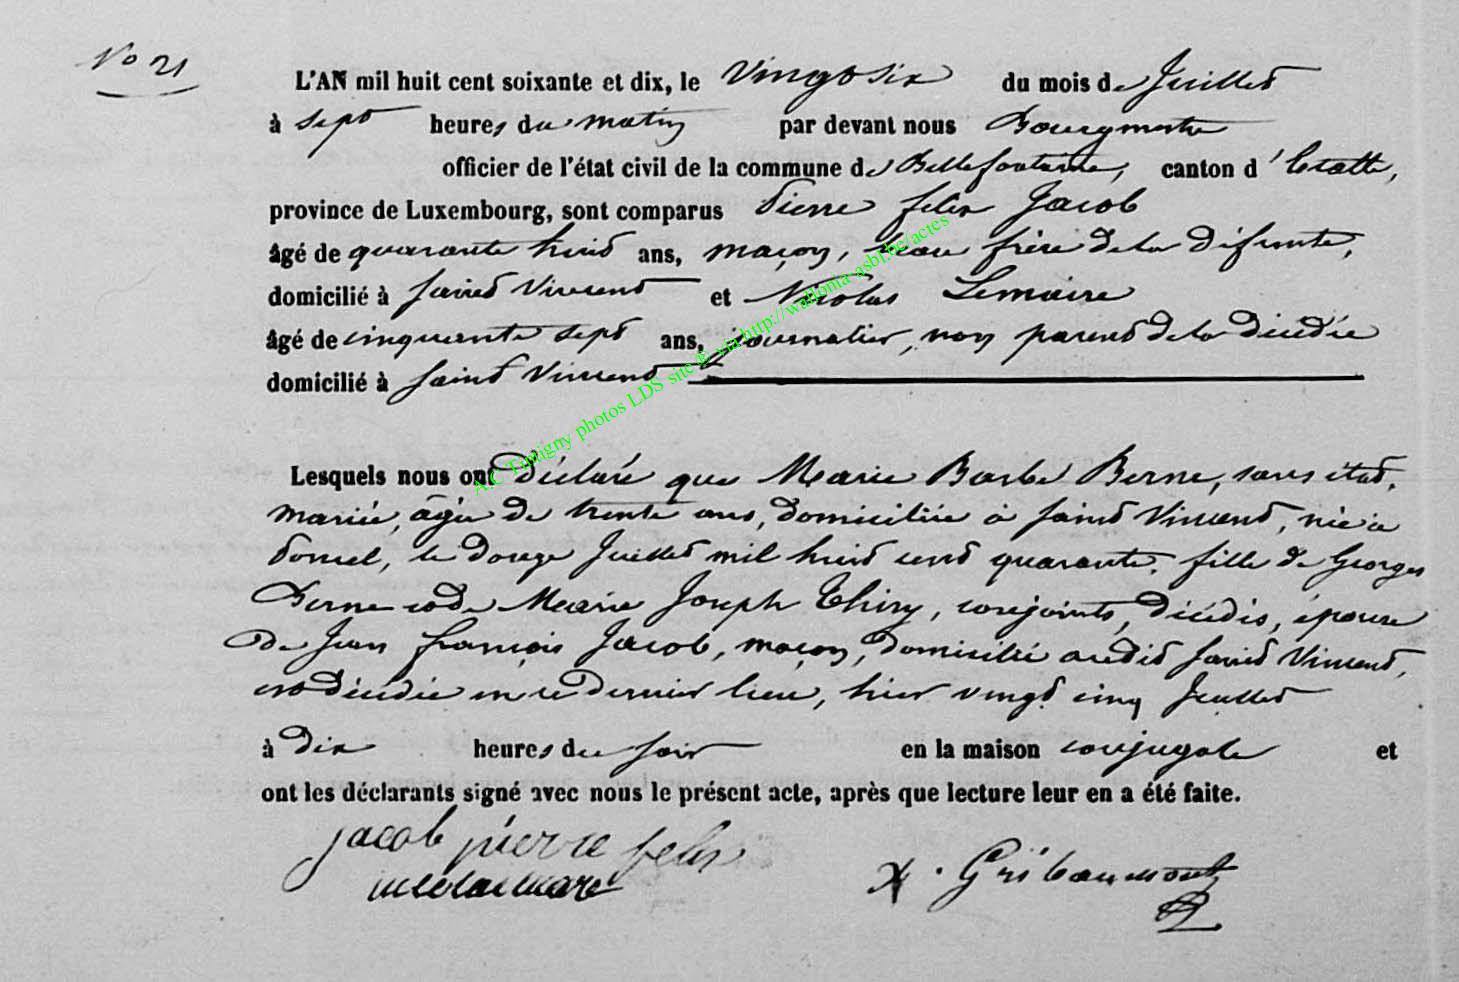 No 21
L'AN mil huit cent soixante et dix, le vingt six du mois de Juillet
à sept heures du matin par devant nous Bourgmestre
officier de l'état civil de la commune de Bellefontaine, canton d'Etalle,
province de Luxembourg, sont comparus Pierre felix Jacob
âgé de quarante huit ans, maçon, beau frère de la défunte,
domicilié à Saint Vincent et Nicolas Lemaire
âgé de cinquante sept ans, journalier, non parent de la décédée
domicilié à Saint Vincent
A.C Tintigny photos LDS site © via http://wallonia-asbl.be/actes
Lesquels nous ont déclaré que Marie Barbe Berne, sans état,
mariée, âgée de trente ans, domiciliée à Saint Vincent, née à
Poncel, le douze Juillet mil huit cent quarante, fille de Georges
Berne et de Marie Joseph Thiry, conjoints, décédés, épouse
de Jean françois Jacob, maçon, domicilié audit Saint Vincent,
est décédée en ce dernier lieu, hier vingt cinq Juillet
à dix heures du soir en la maison conjugale et
ont les déclarants signé avec nous le présent acte, après que lecture leur en a été faite.
jacob pierre felix
X. Gribaumont